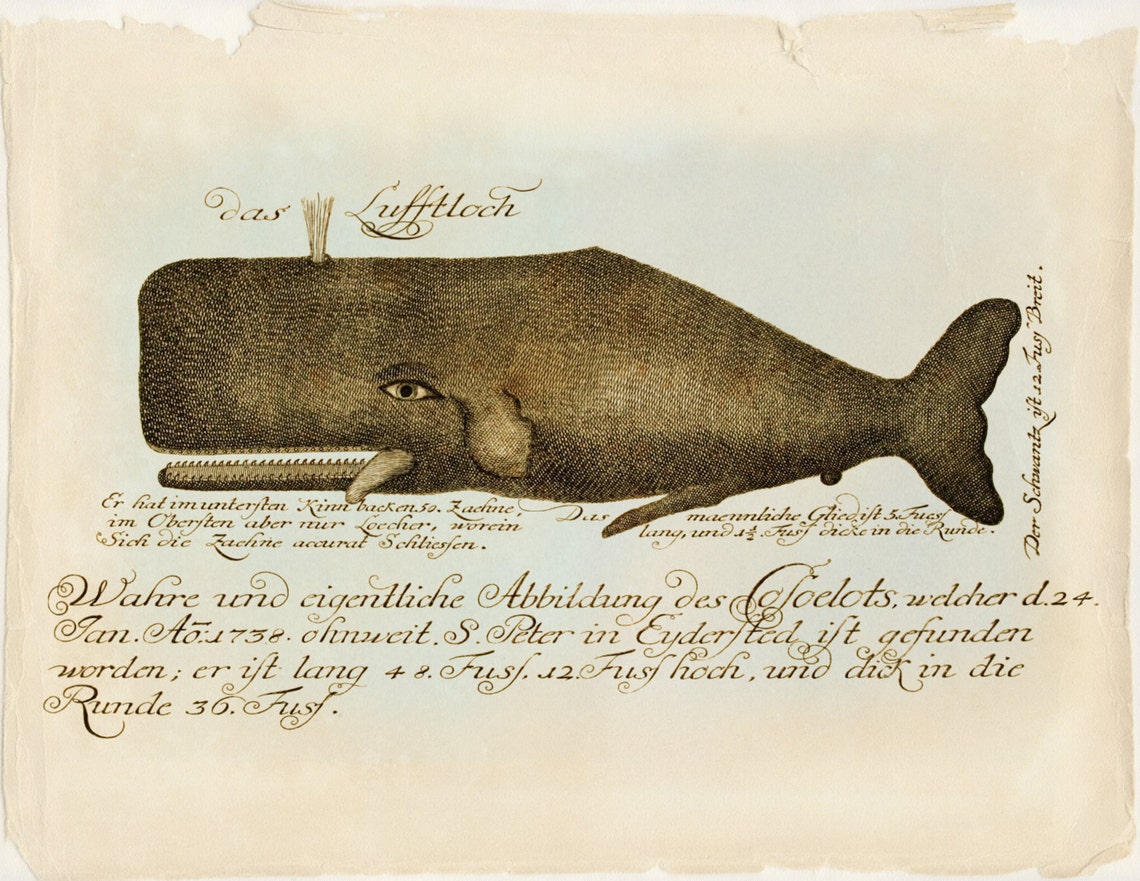 das Lufftloch
Er hat im untersten Kinn backen 50. Zaehne,
im Obersten aber nur Loecher, worein
Sich die Zaehne accurat Schliessen.
Das maennliche Glied ist 5. Fuess
lang, und 1½. Fuss dicke in die Runde.
Der Schwantz ist 12. Fuss Breit.
Wahre und eigentliche Abbildung des Cosoelots, welcher d. 24.
Jan. Aō. 1738. ohnweit. S. Peter in Eydersted ist gefunden
worden; er ist lang 48. Fuss. 12. Fuss hoch, und dick in die
Runde 36. Fuss.